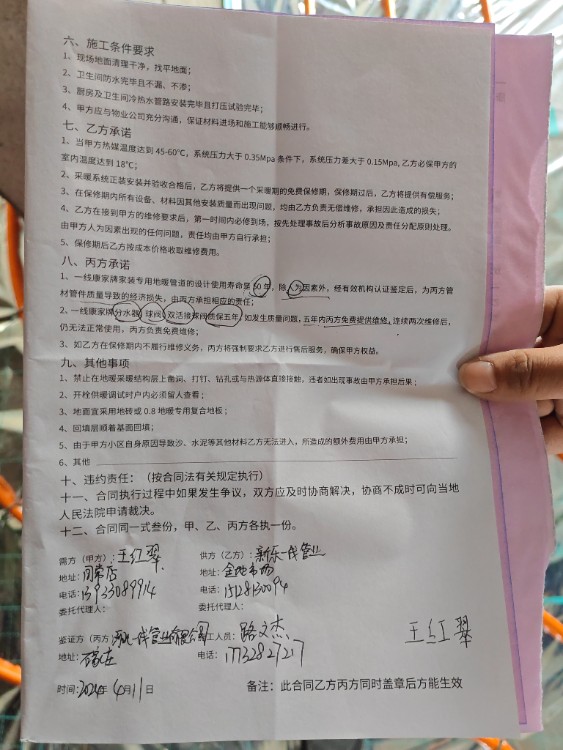 六、施工条件要求
1、现场地面清理干净，找平地面；
2、卫生间防水完毕且不漏、不渗；
3、厨房及卫生间冷热水管路安装完毕且打压试验完毕；
4、甲方应与物业公司充分沟通，保证材料进场和施工能够顺畅进行。
七、乙方承诺
1、当甲方热媒温度达到 45-60℃，系统压力大于 0.35Mpa 条件下，系统压力差大于 0.15Mpa，乙方必保甲方的
室内温度达到 18℃；
2、采暖系统正装安装并验收合格后，乙方将提供一个采暖期的免费保修期，保修期过后，乙方将提供有偿服务；
3、在保修期内所有设备、材料因其他安装质量而出现问题，均由乙方负责无偿维修，承担因此造成的损失；
4、乙方在接到甲方的维修要求后，第一时间内必修到场，按先处理事故后分析事故原因及责任分配原则处理。
由甲方人为因素出现的任何问题，责任均由甲方自行承担；
5、保修期后乙方按成本价格收取维修费用。
八、丙方承诺
1、一线康家牌家装专用地暖管道的设计使用寿命是 50 年，除人为因素外，经有效机构认证鉴定后，为丙方管
材管件质量导致的经济损失，由丙方承担相应的责任；
2、一线康家牌分水器、球阀、双活接球阀质保五年，如发生质量问题，五年内丙方免费提供维修，连续两次维修后，
仍无法正常使用，丙方负责免费维修；
3、如乙方在保修期内不履行维修义务，丙方将强制要求乙方进行售后服务，确保甲方权益。
九、其他事项
1、禁止在地暖采暖结构层上凿洞、打钉、钻孔或与热源体直接接触，违者如出现事故由甲方承担后果；
2、开栓供暖调试时户内必须留人查看；
3、地面宜采用地砖或 0.8 地暖专用复合地板；
4、回填层顺着基面回填；
5、由于甲方小区自身原因导致沙、水泥等其他材料乙方无法进入，所造成的额外费用由甲方承担；
6、其他
十、违约责任：（按合同法有关规定执行）
十一、合同执行过程中如果发生争议，双方应及时协商解决，协商不成时可向当地
人民法院申请裁决。
十二、合同同一式叁份，甲、乙、丙方各执一份。
需方（甲方）：王红翠 供方（乙方）：新乐一线管业
地址：同常店 地址：金地市场
电话：15933089914 电话：15128130094
委托代理人： 委托代理人：
鉴证方（丙方 一线管业有限公司 工人员：路文杰 王红翠
地址：石家庄 电话：17732827217
时间：2024年 4月11日 备注：此合同乙方丙方同时盖章后方能生效